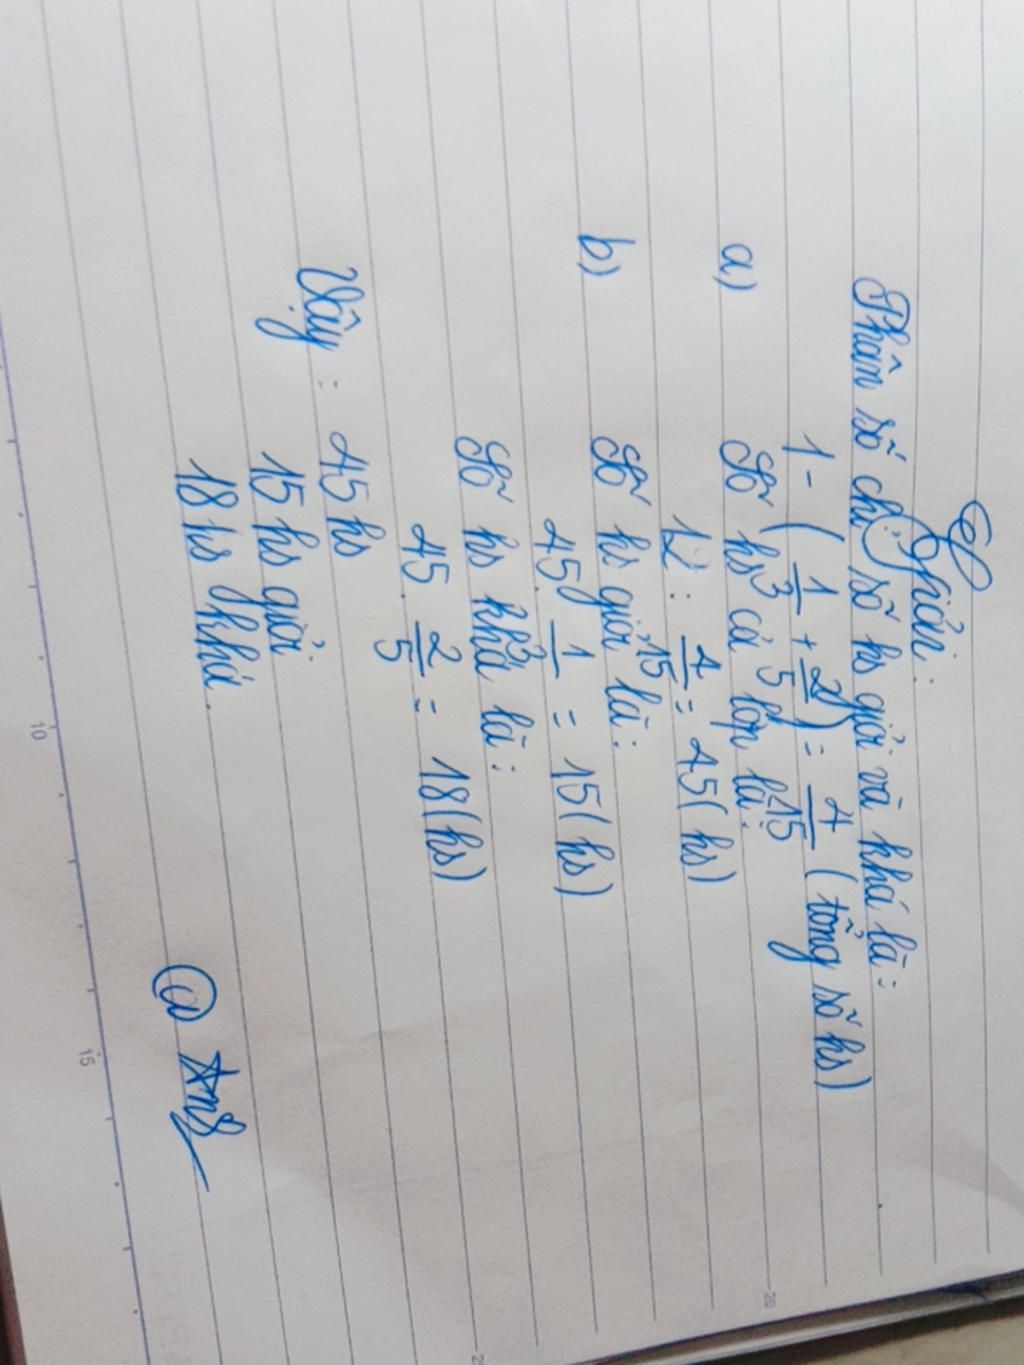 Giải:
Phân số chỉ số hs giỏi và khá là:
1 - ( 1/3 + 2/5 ) = 4/15 ( tổng số hs)
a) Số hs cả lớp là:
12 : 4/15 = 45( hs)
b) Số hs giỏi là:
45. 1/3 = 15( hs)
Số hs khá là:
45. 2/5 = 18( hs)
Vậy : 45 hs
15 hs giỏi
18 hs khá.
10
15
20